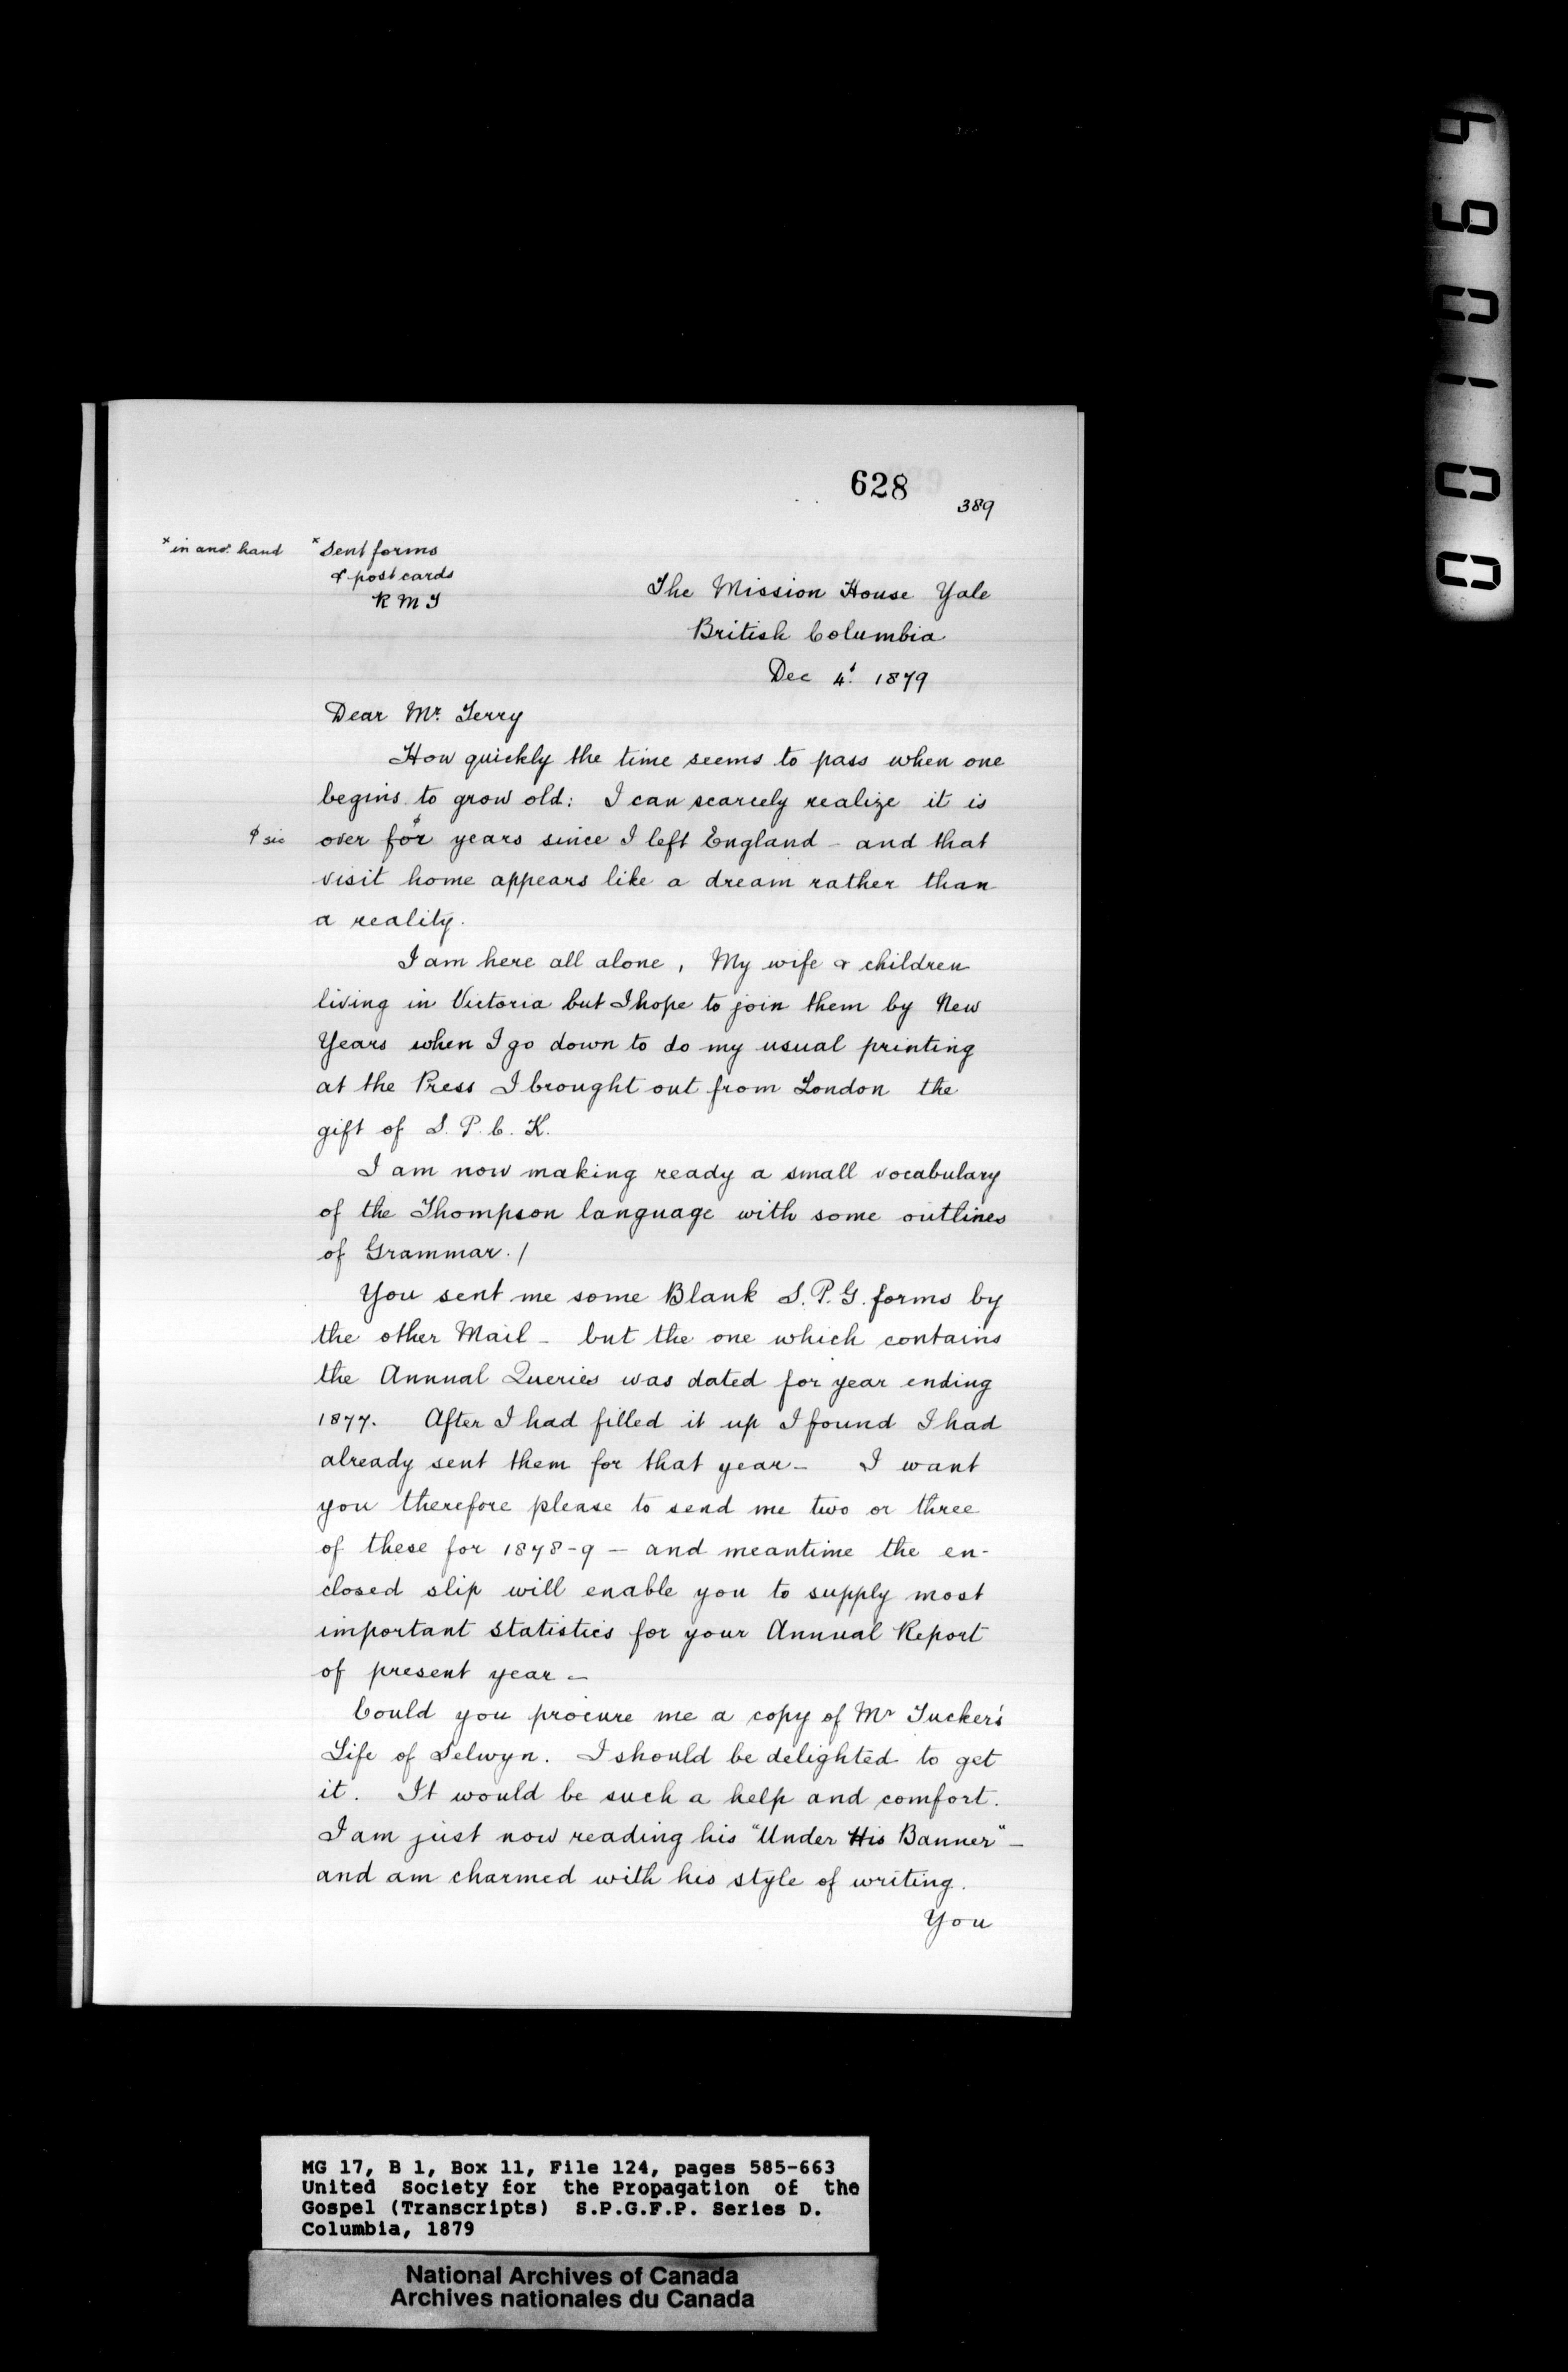 628
389
x in anor. hand
x Sent forms
& post cards
R M T
The Mission House Yale
British Columbia
Dec 4t. 1879
Dear Mr. Terry
How quickly the time seems to pass when one
begins to grow old: I can scarcely realize it is
φ sic over forφ years since I left England – and that
visit home appears like a dream rather than
a reality.
I am here all alone, My wife & children
living in Victoria but I hope to join them by New
Years when I go down to do my usual printing
at the Press I brought out from London the
gift of S. P. C. K.
I am now making ready a small vocabulary
of the Thompson language with some outlines
of Grammar. /
You sent me some Blank S. P. G. forms by
the other Mail – but the one which contains
the Annual Queries was dated for year ending
1877. After I had filled it up I found I had
already sent them for that year – I want
you therefore please to send me two or three
of these for 1878-9 – and meantime the en-
closed slip will enable you to supply most
important statistics for your Annual Report
of present year –
Could you procure me a copy of Mr Tucker's
Life of Selwyn. I should be delighted to get
it. It would be such a help and comfort.
I am just now reading his "Under His Banner" –
and am charmed with his style of writing.
You
MG 17, B 1, Box 11, File 124, pages 585-663
United Society for the Propagation of the
Gospel (Transcripts) S.P.G.F.P. Series D.
Columbia, 1879
National Archives of Canada
Archives nationales du Canada